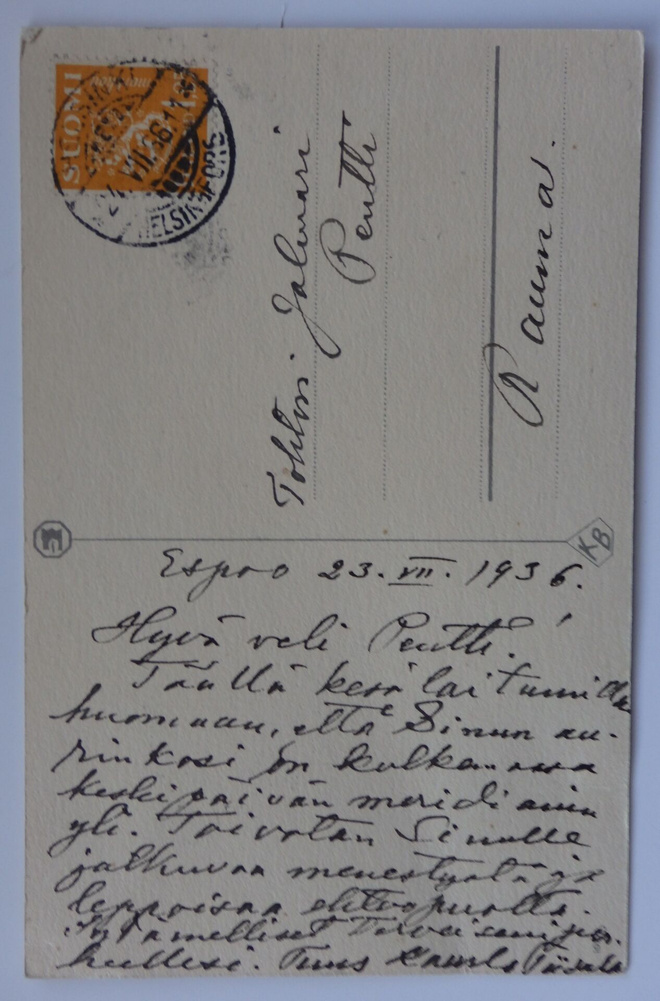 SUOMI
24.VII.36.11
HELSINGFORS
Tohtori Jalmari
Pentti
Rauma.
KB
Espoo 23.VII.1936.
Hyvä veli Pentti!
Täällä kesälaitumilla
huomaan, että Sinun au-
rinkosi on kulkemassa
keskipäivän meridiaanin
yli. Toivotan Sinulle
jatkuvaa menestystä ja
leppoisaa ehtoopuolta.
Sydämelliset terveiseni per-
heellesi. Tuus